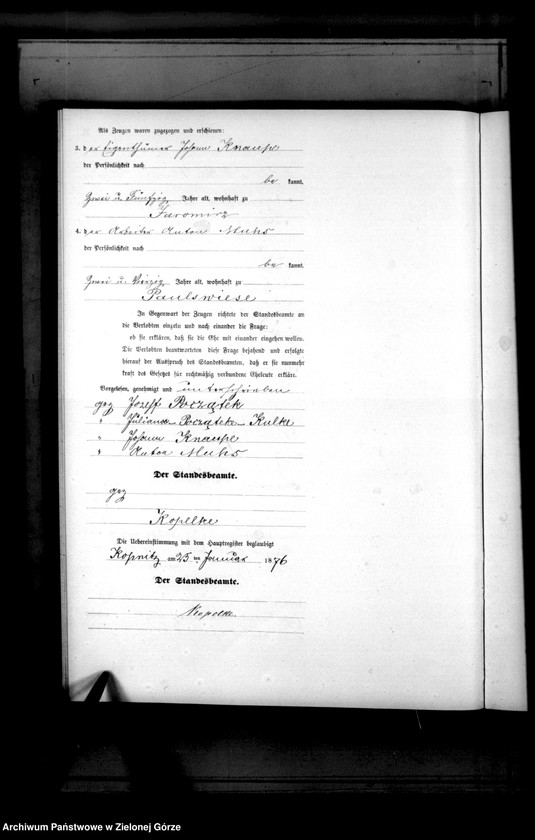 Als Zeugen waren zugezogen und erschienen:
3. der Eigenthümer Johann Knaupe
der Persönlichkeit nach
be kannt,
Zwei u. Fünfzig Jahre alt, wohnhaft zu
Jaromirz
4. der Arbeiter Anton Muhs
der Persönlichkeit nach
be kannt,
Zwei u. Vierzig Jahre alt, wohnhaft zu
Paulswiese
In Gegenwart der Zeugen richtete der Standesbeamte an
die Verlobten einzeln und nach einander die Frage:
ob sie erklären, daß sie die Ehe mit einander eingehen wollen.
Die Verlobten beantworteten diese Frage bejahend und erfolgte
hierauf der Ausspruch des Standesbeamten, daß er sie nunmehr
kraft des Gesetzes für rechtmäßig verbundene Eheleute erkläre.
Vorgelesen, genehmigt und unterschrieben
gez Jozeff Początek
" Juliana Początek Kulke
" Johann Knaupe
" Anton Muhs
Der Standesbeamte.
gez
Kopelke
Die Uebereinstimmung mit dem Hauptregister beglaubigt
Kopnitz am 25 ten Januar 1876
Der Standesbeamte.
Kopelke
Archiwum Państwowe w Zielonej Górze